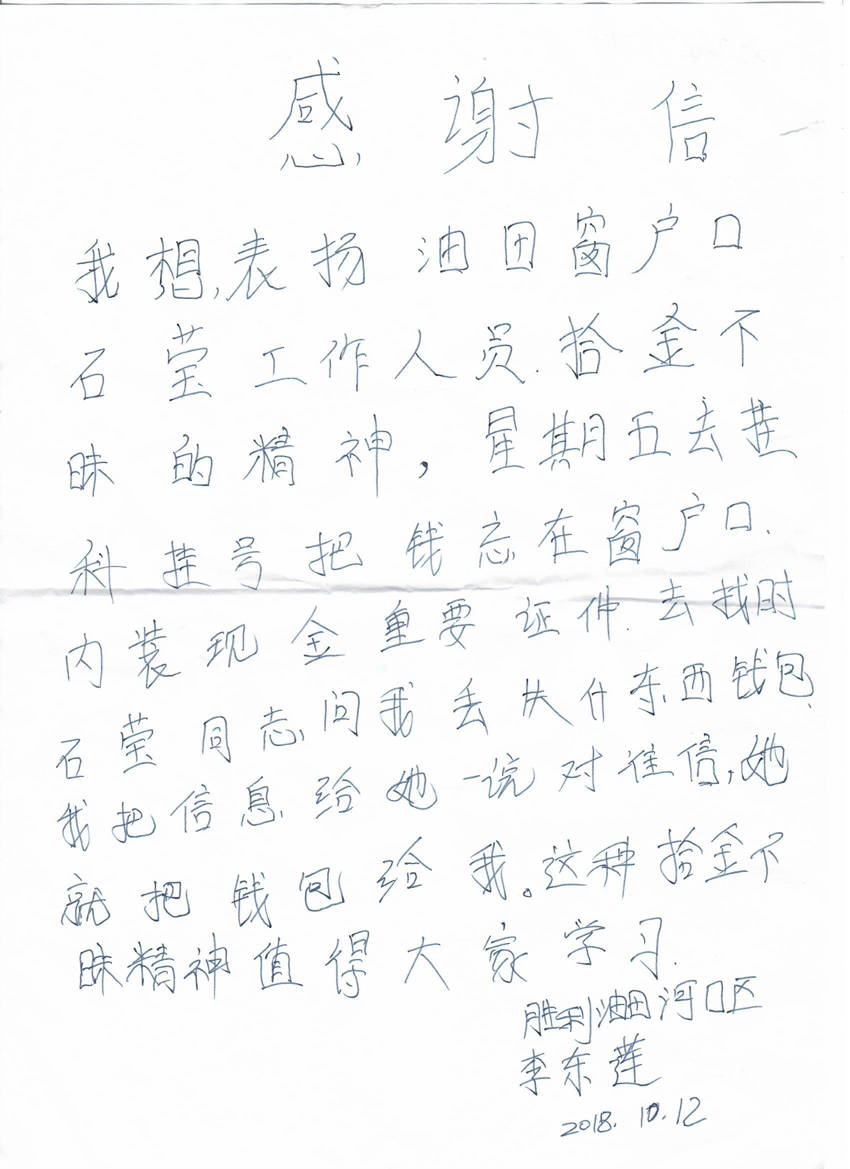 感谢信
我想,表扬油田窗户口
石莹工作人员.拾金不
昧的精神，星期五去
科挂号把钱忘在窗户口.
内装现金重要证件.去找时
石莹同志,问我丢失什东西钱包.
我把信息给她一说对准信,她
就把钱包给我。这种拾金不
昧精神值得大家学习.
胜利油田河口区
李东莲
2018.10.12